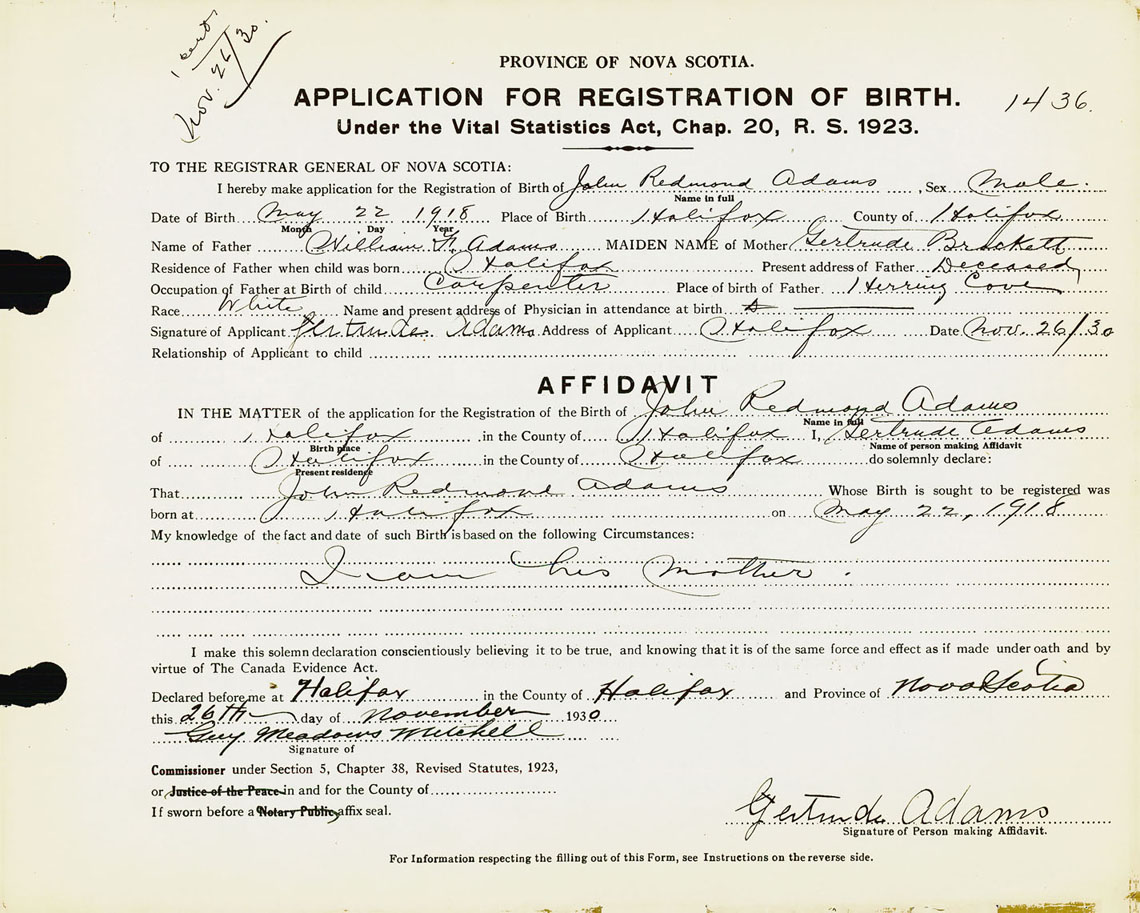 1 cert.
Nov. 26/30.
PROVINCE OF NOVA SCOTIA.
APPLICATION FOR REGISTRATION OF BIRTH. 1436.
Under the Vital Statistics Act, Chap. 20, R. S. 1923.
TO THE REGISTRAR GENERAL OF NOVA SCOTIA:
I hereby make application for the Registration of Birth of John Redmond Adams, Sex Male.
Name in full
Date of Birth May 22 1918 Place of Birth Halifax County of Halifax
Month Day Year
Name of Father William Adams MAIDEN NAME of Mother Gertrude Brackett
Residence of Father when child was born Halifax Present address of Father Deceased
Occupation of Father at Birth of child Carpenter Place of birth of Father Herring Cove
Race White Name and present address of Physician in attendance at birth
Signature of Applicant Gertrude Adams Address of Applicant Halifax Date Nov. 26/30
Relationship of Applicant to child
AFFIDAVIT
IN THE MATTER of the application for the Registration of the Birth of John Redmond Adams
Name in full
of Halifax in the County of Halifax I, Gertrude Adams
Birth place Name of person making Affidavit
of Halifax in the County of Halifax do solemnly declare:
Present residence
That John Redmond Adams Whose Birth is sought to be registered was
born at Halifax on May 22, 1918
My knowledge of the fact and date of such Birth is based on the following Circumstances:
I am his Mother.
I make this solemn declaration conscientiously believing it to be true, and knowing that it is of the same force and effect as if made under oath and by
virtue of The Canada Evidence Act.
Declared before me at Halifax in the County of Halifax and Province of Nova Scotia
this 26th day of November 1930
Guy Meadows Mitchell
Signature of
Commissioner under Section 5, Chapter 38, Revised Statutes, 1923,
or Justice of the Peace in and for the County of
If sworn before a Notary Public, affix seal.
Gertrude Adams
Signature of Person making Affidavit.
For Information respecting the filling out of this Form, see Instructions on the reverse side.